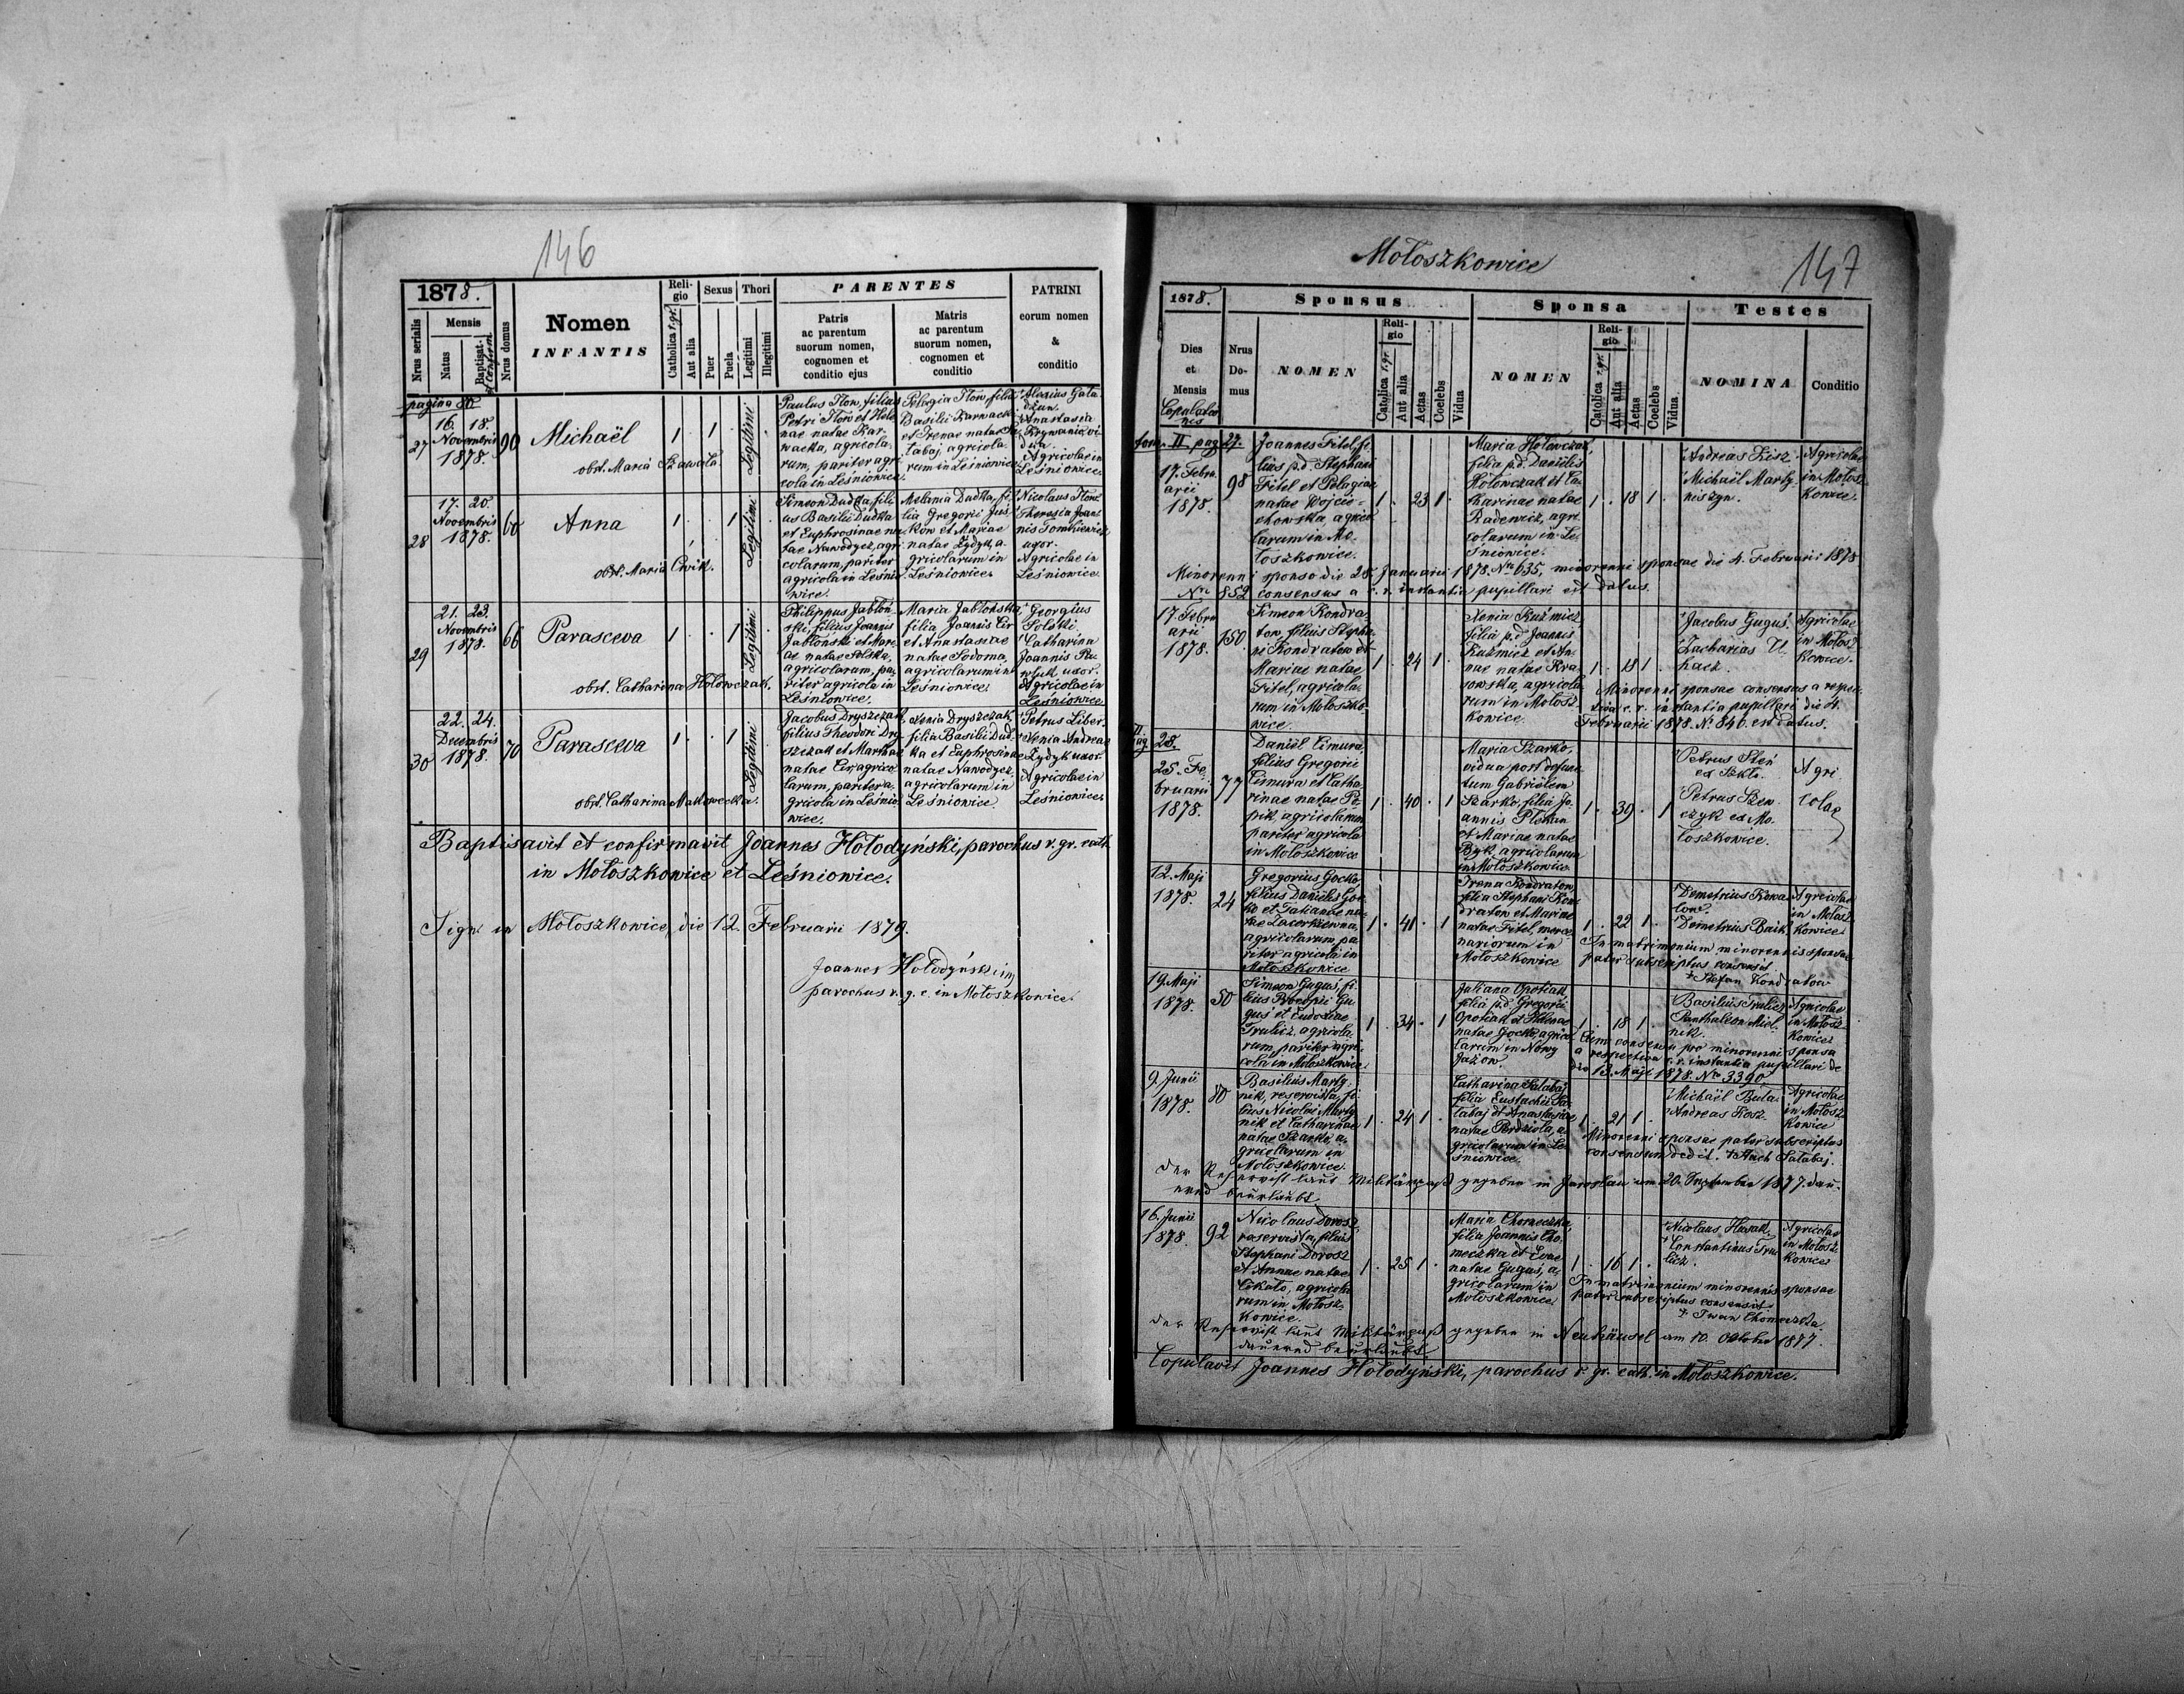 146
1878.
Nrus serialis
Mensis
Natus
Baptisat.
et Confirm.
Nrus domus
Nomen
INFANTIS
Religio
Catholica r. gr.
Aut alia
Sexus
Puer
Puela
Thori
Legitimi
Illegitimi
PARENTES
Patris
ac parentum
suorum nomen,
cognomen et
conditio ejus
Matris
ac parentum
suorum nomen,
cognomen et
conditio
PATRINI
eorum nomen
&
conditio
pagina 80
27
16. 18.
Novembris
1878.
90
Michaël
obst. Maria Szawala
1 . 1 .
Legitimi
Paulus Iłow, filius
Petri Iłow et Hele-
nae natae Kar-
wacka, agricola-
rum, pariter agri-
cola in Leśniowice.
Pelagia Iłow, filia
Basilii Karwacki
et Irenae natae Sa-
tabaj, agricola-
rum in Leśniowice.
Alexius Gala-
dżun.
Anastasia
Krywanio, vi-
dua.
Agricolae in
Leśniowice.
28
17. 20.
Novembris
1878.
60
Anna
obst. Maria Cwik.
1 . . 1
Legitimi
Simeon Dudka, fili-
us Basilii Dudka
et Euphrosinae na-
tae Nawodycz, agri-
colarum, pariter
agricola in Leśnio-
wice.
Melania Dudka, fi-
lia Gregorii Jus-
kow et Mariae
natae Zydyk, a-
gricolarum in
Leśniowice.
Nicolaus Iłow.
Theresia Joan-
nis Tomkiewicz
uxor.
Agricolae in
Leśniowice.
29
21. 23.
Novembris
1878.
66
Parasceva
obst. Catharina Hołowczak.
1 . . 1
Legitimi
Philippus Jabłoń-
ski, filius Joannis
Jabłoński et Mari-
ae natae Solska,
agricolarum, pa-
riter agricola in
Leśniowice.
Maria Jabłońska,
filia Joannis Cir
et Anastasiae
natae Sodoma,
agricolarum in
Leśniowice.
Georgius
Solski.
Catharina
Joannis Pa-
uxor.
Agricolae in
Leśniowice.
30
22. 24.
Decembris
1878.
70
Parasceva
obst. Catharina Makowecka.
1 . . 1
Legitimi
Jacobus Dryszczak,
filius Theodori Dry-
szczak et Marthae
natae Cir, agrico-
larum, pariter a-
gricola in Leśnio-
wice.
Xenia Dryszczak,
filia Basilii Dud-
ka et Euphrosinae
natae Nawodycz,
agricolarum in
Leśniowice
Petrus Liber.
Xenia Andreae
Zydyk uxor.
Agricolae in
Leśniowice.
Baptisavit et confirmavit Joannes Hołodyński, parochus r. gr. cath.
in Mołoszkowice et Leśniowice.
Sign. in Mołoszkowice, die 12. Februarii 1879.
Joannes Hołodyński mp
parochus r. g. c. in Mołoszkowice.
Mołoszkowice
147
1878.
Dies
et
Mensis
Copulationes
Nrus
Do-
mus
Sponsus
NOMEN
Religio
Catolica r. gr.
Aut alia
Aetas
Coelebs
Vidua
Sponsa
NOMEN
Religio
Catolica r. gr.
Aut alia
Aetas
Coelebs
Vidua
Testes
NOMINA
Conditio
tom. II. pag. 27.
17. Febru-
arii
1878.
98
Joannes Fitel, fi-
lius p.d. Stephani
Fitel et Pelagiae
natae Wojcie-
chowska, agrico-
larum in Mo-
łoszkowice.
1 . 23 1 .
Maria Hołowczak,
filia p.d. Danielis
Hołowczak et Ca-
tharinae natae
Radewicz, agri-
colarum in Le-
śniowice.
1 . 18 1 .
Andreas Kisz.
Michaël Marty-
niszyn.
Agricolae
in Mołosz-
kowice.
Minorenni sponso die 28. Januarii 1878. Nro 635, minorenni sponsae die 4. Februarii 1878
Nro 852 consensus a c. r. instantia pupillari est datus.
17. Febru-
arii
1878.
150
Simeon Kondra-
tow, filius Stepha-
ni Kondratow et
Mariae natae
Fitel, agricola-
rum in Mołoszko-
wice.
1 . 24 1 .
Xenia Kuźmicz
filia p.d. Joannis
Kuźmicz et An-
nae natae Kra-
sowska, agricola-
rum in Mołosz-
kowice.
1 . 18 1 .
Jacobus Guguś.
Zacharias U-
hacz.
Agricolae
in Mołosz-
kowice.
Minorenni sponsae consensus a respec-
tiva c. r. instantia pupillari die 4.
Februarii 1878. N. 846. est datus.
II.
pag. 28.
25. Fe-
bruarii
1878.
77
Daniel Cimura,
filius Gregorii
Cimura et Catha-
rinae natae Po-
pik, agricolarum
pariter agricola
in Mołoszkowice
1 . 40 . 1
Maria Szarko,
vidua post defunc-
tum Gabrielem
Szarko, filia Jo-
annis Plohan
et Mariae natae
Byk, agricolarum
in Mołoszkowice
1 . 39 . 1
Petrus Steń
ex Szkło.
Petrus Szew-
czyk ex Mo-
łoszkowice.
Agri-
colae
12. Maji
1878.
24
Gregorius Gocko
filius Danielis Goc-
ko et Tatianae na-
tae Lacerkiewna,
agricolarum pa-
riter agricola in
Mołoszkowice
1 . 41 . 1
Irena Kondratow,
filia Stephani Kon-
dratow et Mariae
natae Fitel, merce-
nariorum in
Mołoszkowice
1 . 22 1 .
Demetrius Kowa-
low.
Demetrius Baik.
Agricolae
in Mołosz-
kowice
In matrimonium minorennis sponsae
pater subscriptus consensit.
+ Stefan Kondratow
19. Maji
1878.
50
Simeon Guguś, fi-
lius Procopii Gu-
guś et Eudoxiae
Trulicz, agricola-
rum, pariter agri-
cola in Mołoszkowice.
1 . 34 . 1
Juliana Opotiak
filia p.d. Gregorii
Opotiak et Helenae
natae Gocko, agrico-
larum in Nowy
Jazow.
1 . 18 1 .
Basilius Trulicz
Panthaleon Miel-
nik.
Agricolae
in Mołosz-
kowice
Cum consensu pro minorenni sponsa
a respectiva c. r. instantia pupillari de
dto 13. Maji 1878. Nro 3390
9. Junii
1878.
80
Basilius Marty-
nik, reservista, fi-
lius Nicolai Marty-
nik et Catharinae
natae Szarko, a-
gricolarum in
Mołoszkowice.
1 . 24 1 .
Catharina Satabaj
filia Eustachii Sa-
tabaj et Anastasiae
natae Perdziola, a-
gricolarum in Le-
śniowice.
1 . 21 1 .
Michaël Buła.
Andreas Kosz.
Agricolae
in Mołosz-
kowice
Minorenni sponsae pater subscriptus
consensum dedit. + Satabaj.
Der Reservist laut Militärpaß gegeben in Jaroslau am 20. September 1877. dau-
ernd beurlaubt
16. Junii
1878.
92
Nicolaus Dorosz,
reservista, filius
Stephani Dorosz
et Annae natae
Cikało, agricola-
rum in Mołosz-
kowice.
1 . 25 1 .
Maria Chomeczka,
filia Joannis Cho-
meczka et Evae
natae Guguś, a-
gricolarum in
Mołoszkowice
1 . 16 1 .
Nicolaus Husak,
Constantinus Tru-
licz.
Agricolae
in Mołosz-
kowice
In matrimonium minorennis sponsae
pater subscriptus consensit
+ Iwan Chomeczka
Der Reservist laut Militärpaß gegeben in Neuhäusel am 10. October 1877.
dauernd beurlaubt
Copulavit Joannes Hołodyński, parochus r. gr. cath. in Mołoszkowice.